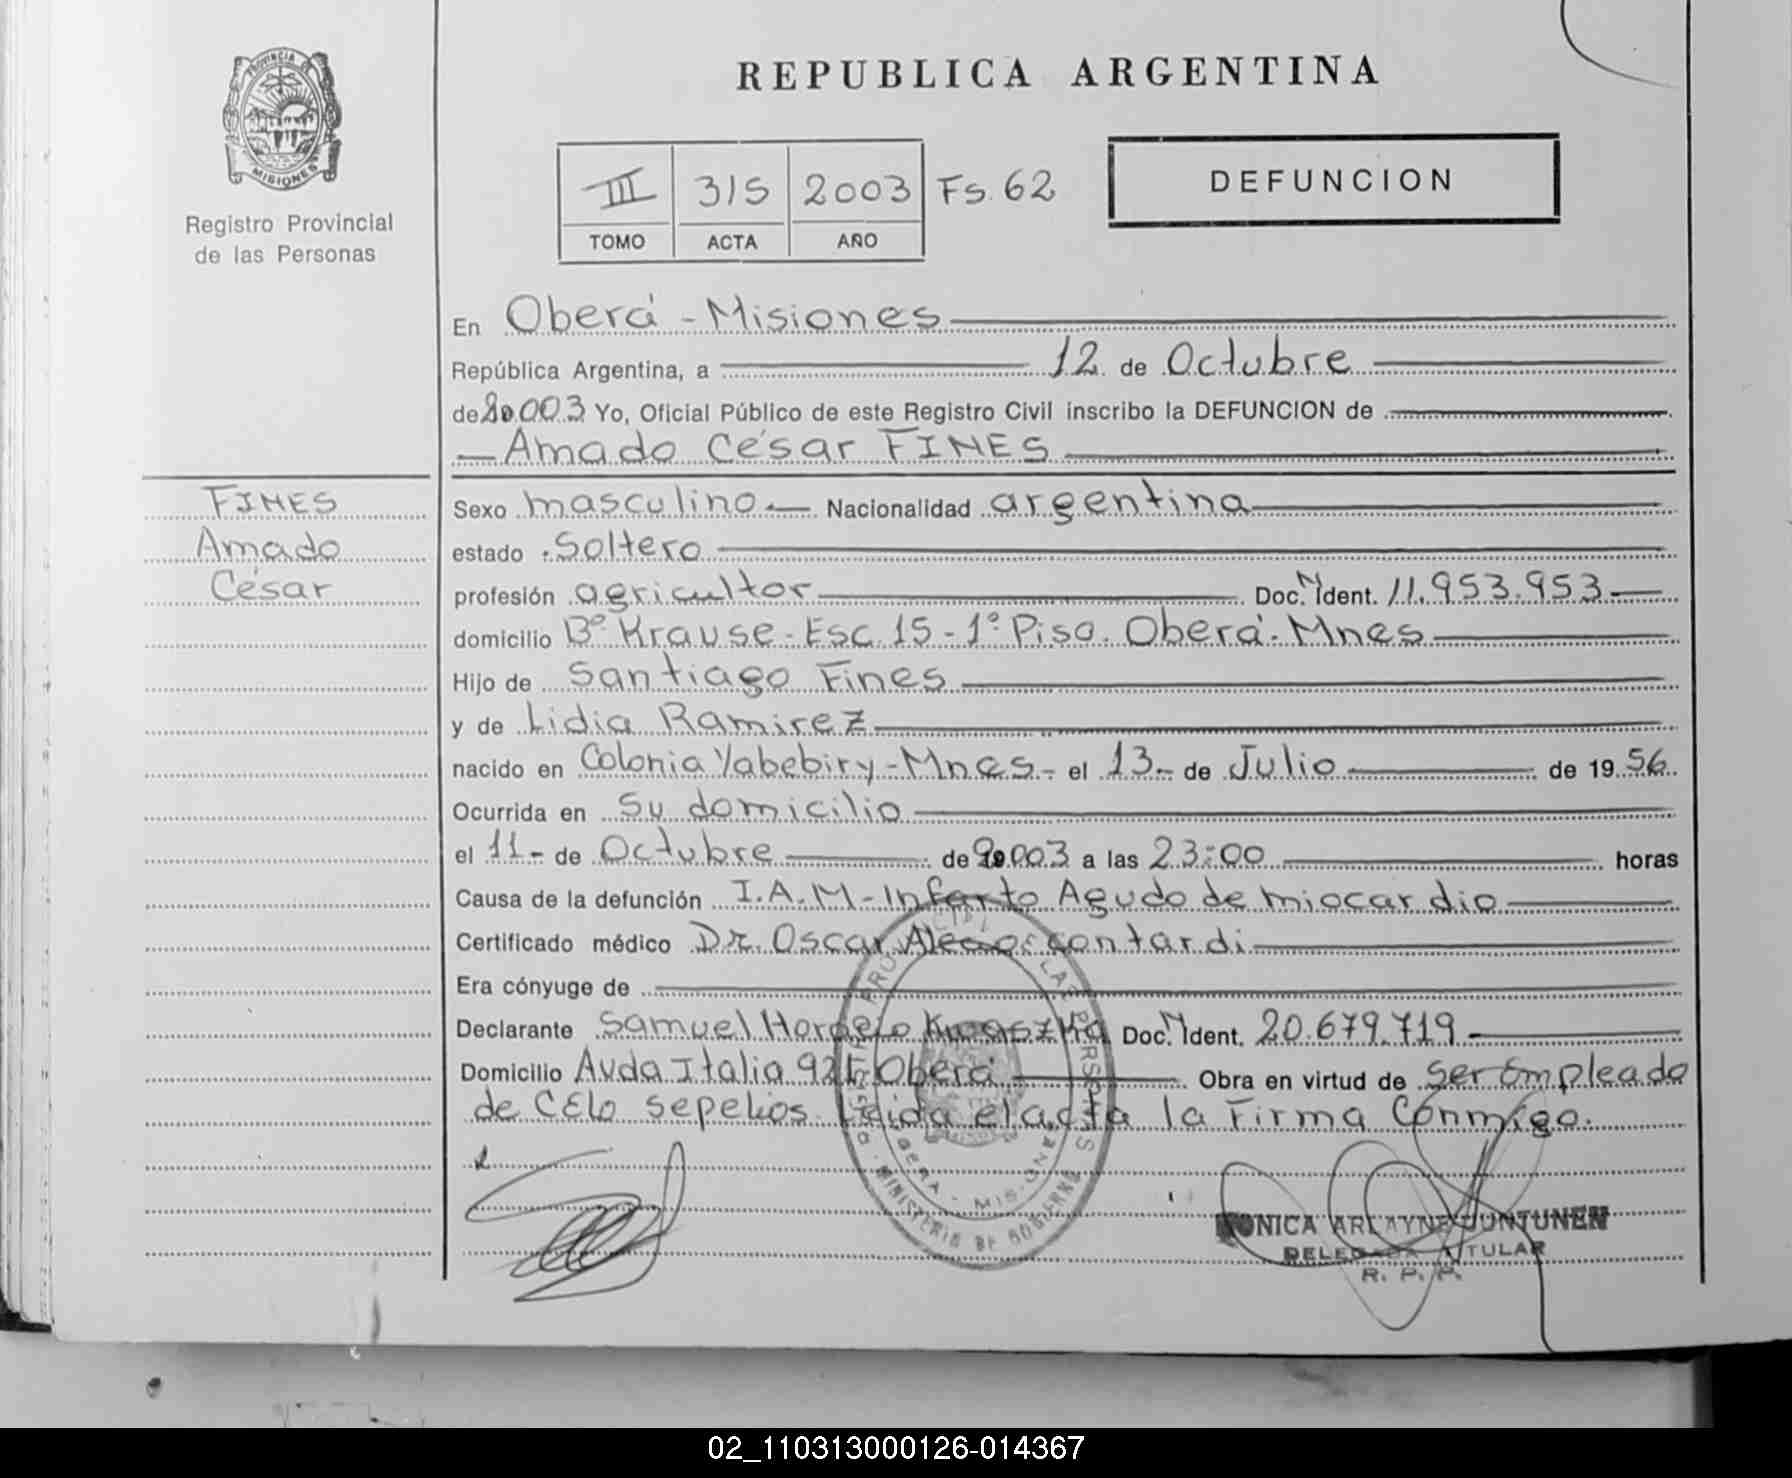 REPUBLICA ARGENTINA
PROVINCIA DE MISIONES
Registro Provincial
de las Personas
III 315 2003 Fs. 62
TOMO ACTA AÑO
DEFUNCION
En Oberá - Misiones
República Argentina, a 12 de Octubre
de 2.003 Yo, Oficial Público de este Registro Civil inscribo la DEFUNCION de
Amado César FINES
FINES
Amado
César
Sexo masculino Nacionalidad argentina
estado Soltero
profesión agricultor Doc. N Ident. 11.953.953
domicilio Bº Krause - Esc. 15 - 1º Piso. Oberá - Mnes
Hijo de Santiago Fines
y de Lidia Ramirez
nacido en Colonia Yabebiry - Mnes - el 13 - de Julio de 19 56
Ocurrida en Su domicilio
el 11 - de Octubre de 2.003 a las 23:00 horas
Causa de la defunción I.A.M - Infarto Agudo de miocardio
Certificado médico Dr. Oscar contardi
Era cónyuge de
Declarante Samuel Horacio Doc. N Ident. 20.679.719
Domicilio Avda Italia Oberá Obra en virtud de ser Empleado
de CELO sepelios. Leida el acta la Firma Conmigo.
MINISTERIO DE GOBIERNO
OBERA - MISIONES
MONICA ARLAYNE JUNTUNEN
DELEGADA TITULAR
R. P. P.
02_110313000126-014367